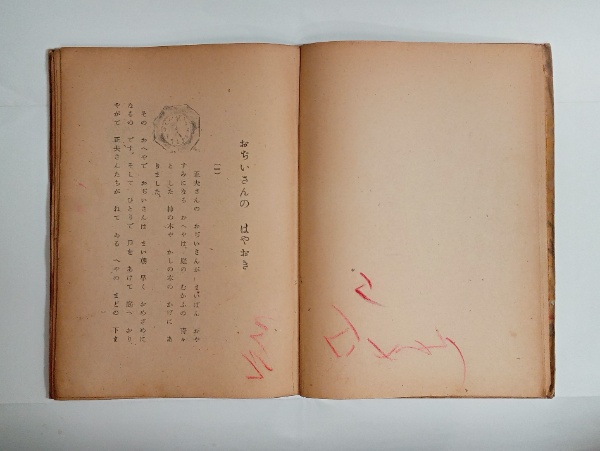 おぢいさんの はやおき
一
正夫さんの おぢいさんが、まいばん おや
すみになる おへやは、庭の むかふの 青々
と した 柿の木や かしの木の かげに あ
りました。
その おへやで おぢいさんは まい朝 早く おめざめに
なるの です。そして ひとりで 戸を あけて 庭へ おり
やがて 正夫さんたちが ねて ゐる へやの まどの 下ま